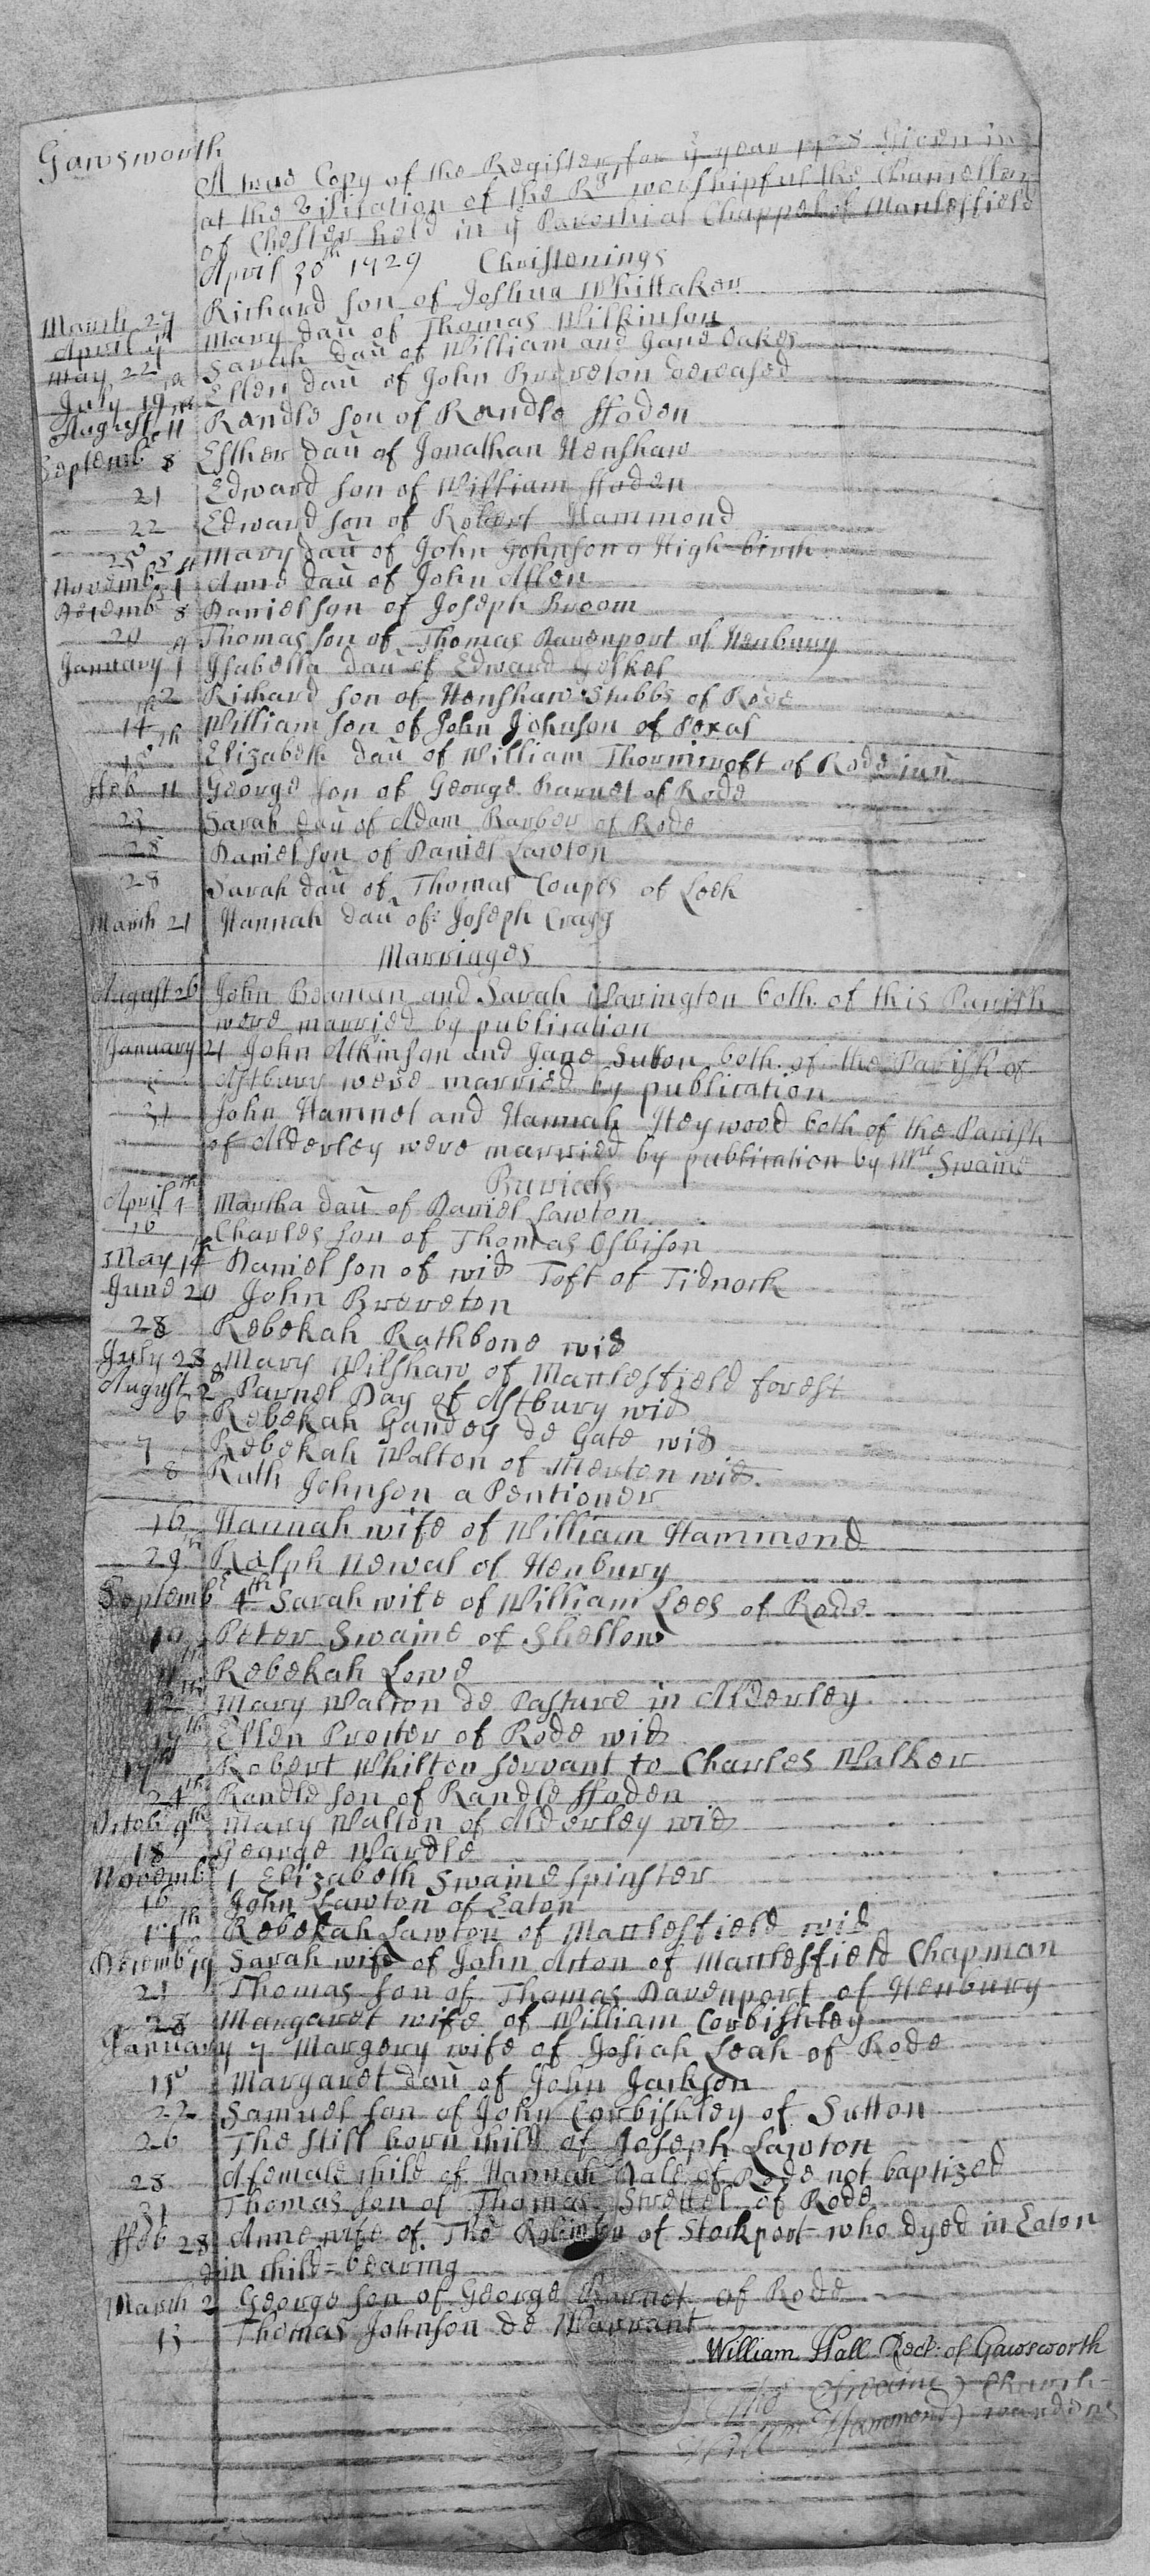 Gawsworth
A true Copy of the Register for ye year 1728 Given in
at the Visitation of the Rt worshipful the Chancellor
of Chester held in ye Parochial Chappel of Manlesfield
April 30th 1729 Christenings
March 27 Richard son of Joshua Whittaker
April Mary dau of Thomas Wilkinson
May 22 Sarah dau of William and Jane Oakes
July 19 Ellen dau of John Brereton deceased
August 11 Randle son of Randle Hoden
Septemb 8 Esther dau of Jonathan Henshaw
21 Edward son of William Hoden
22 Edward son of Robert Hammond
25 Mary dau of John Johnson a High-birch
Novemb 1 Anne dau of John Allen
Decemb 8 Daniel son of Joseph Broom
20 Thomas son of Thomas Davenport of Henbury
January 1 Isabella dau of Edward
2 Richard son of Henshaw Stubbs of Rode
14th William son of John Johnson of Pexal
15th Elizabeth dau of William Thornicroft of Rode iun
ffeb 11 George son of George Barnet of Rode
23 Sarah dau of Adam Barber of Rode
28 Daniel son of Daniel Lawton
28 Sarah dau of Thomas Coupes of Leek
March 21 Hannah dau of Joseph Cragg
Marriages
August 26 John Beaman and Sarah Warington both of this Parish
were married by publication
January 21 John Atkinson and Jane Sutton both of the Parish of
Astbury were married by publication
31 John Hamnet and Hannah Heywood both of the Parish
of Alderley were married by publication by Mr Swaine
Burials
April 1th Martha dau of Daniel Lawton
16 Charles son of Thomas Osbison
May 14th Daniel son of wid Toft of Tidnock
June 20 John Brereton
28 Rebekah Rathbone wid
July 28 Mary Wilshaw of Manlesfield forest
August 2d Parnel Day of Astbury wid
6 Rebekah Gandey de Gate wid
7 Rebekah Walton of Merton wid.
8 Ruth Johnson a Pentioner
16 Hannah wife of William Hammond
29th Ralph Newal of Henbury
Septemb 4th Sarah wife of William Lees of Rode
10 Peter Swaine of Shellow
Rebekah Lowe
12th Mary Walton de Pasture in Alderley
Ellen Procter of Rode wid
Robert Whilton servant to Charles Walker
24th Randle son of Randle Hoden
Octob 9th Mary Walton of Alderley wid
18 George Wardle
Novemb 1 Elizabeth Swaine spinster
16 John Lawton of Eaton
17th Rebekah Lawton of Manlesfield wid
Decemb 19 Sarah wife of John Acton of Manlesfield Chapman
21 Thomas son of Thomas Davenport of Henbury
28 Margaret wife of William Corbishley
January 7 Margery wife of Josiah Leah of Rode
15 Margaret dau of John Jackson
22 Samuel son of John Corbishley of Sutton
26 The still born child of Joseph Lawton
28 A female child of Hannah Dale of Rode not baptized
31 Thomas son of Thomas Swettel of Rode
ffeb 28 Anne wife of Tho of Stockport who dyed in Eaton
in child=bearing
March 2 George son of George Barnet of Rode
13 Thomas Johnson de Warrant
William Hall Rect. of Gawsworth
Tho Swaine } Church-
Will Hammond } wardens